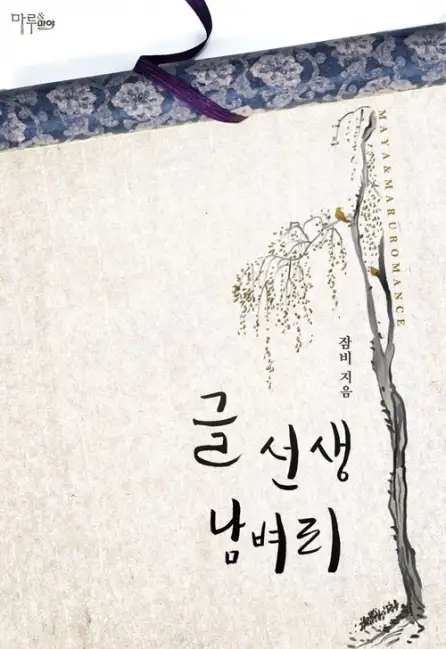 마루&마야
MAYA&MARU ROMANCE
잠비 지음
글 선생
남벼리